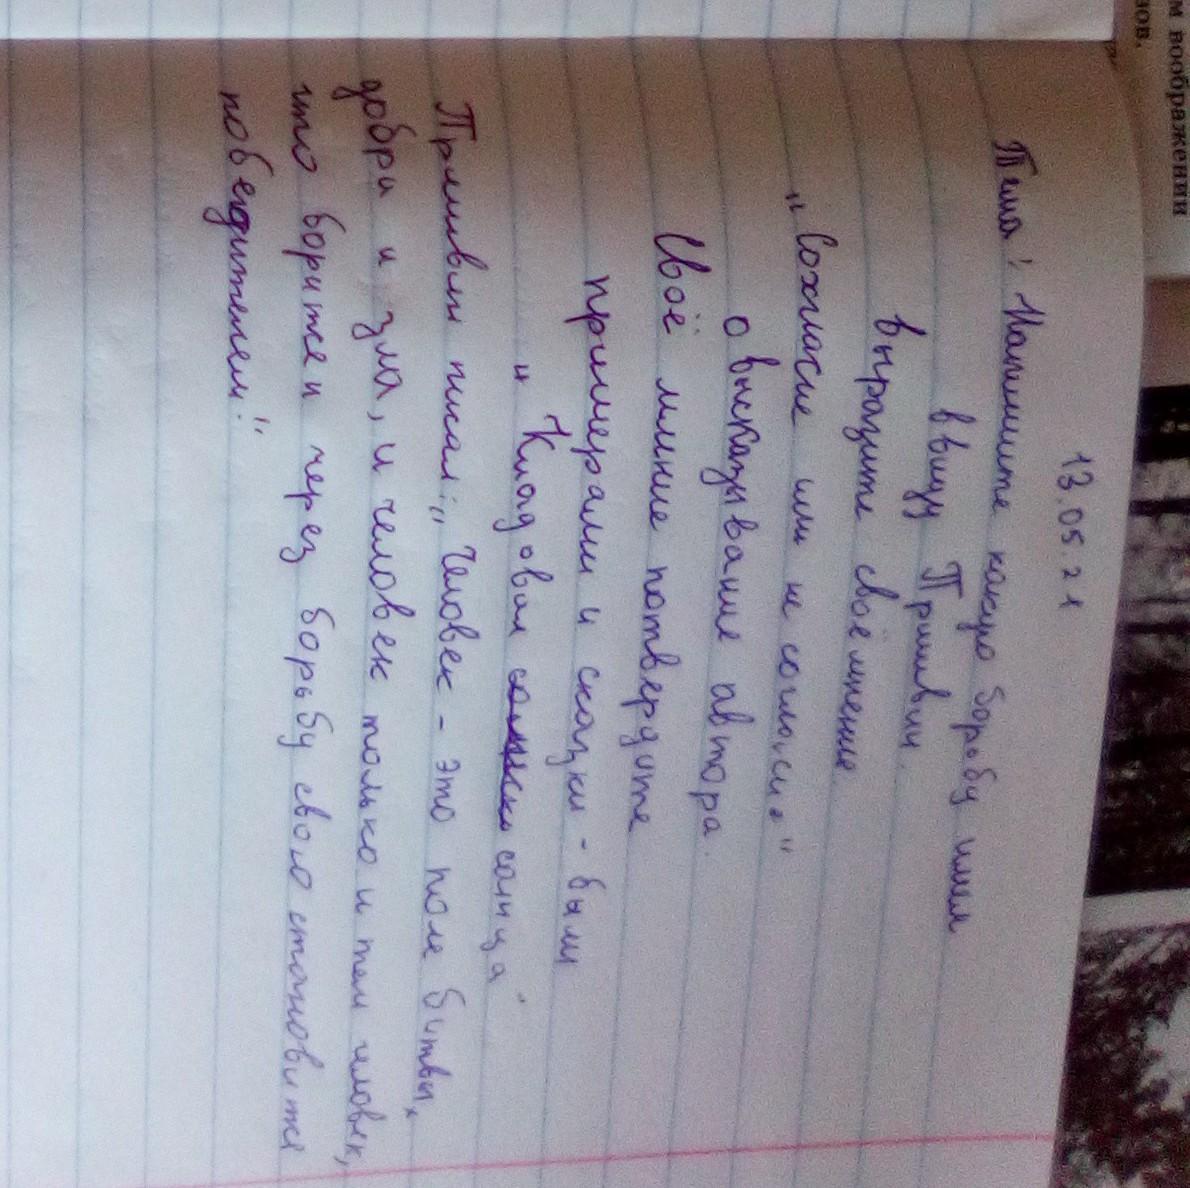 13.05.21
Тема: Напишите какую борьбу имел
ввиду Пришвин.
выразите своё мнение.
„Сохгласие или не согласи."
о высказывание автора.
Своё мление потвердите
примерами и сказки - были
„Кладовая солнко солнца"
Пришвин писал: „Человек - это поле битвы,
добра и зла, и человек только и тем человек,
что боритсе и через борьбу свою становится
победителем."
м воображении
зов.